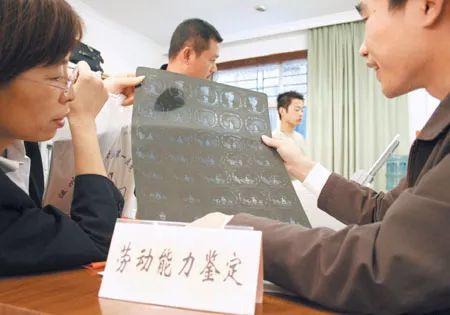 劳动能力鉴定